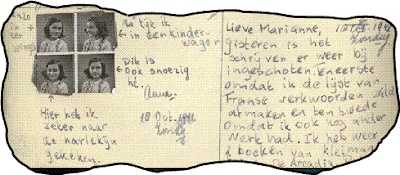 kijk ik
in een kinder-
wagen
Dit is
ook snoezig
hè.
Anne.
Hier heb ik
zeker naar
de narlekijn
gekeken.
18 Oct. 1942
Zondag
Lieve Marianne,
Zondag
gisteren is het
schrijven er weer bij
ingeschoten. Eneerste
omdat ik de lijst van
Franse werkwoorden wilde
afmaken en ten tweede
Omdat ik ook nog ander
werk had. Ik heb weer
2 boeken van kleiman
De Arcadia